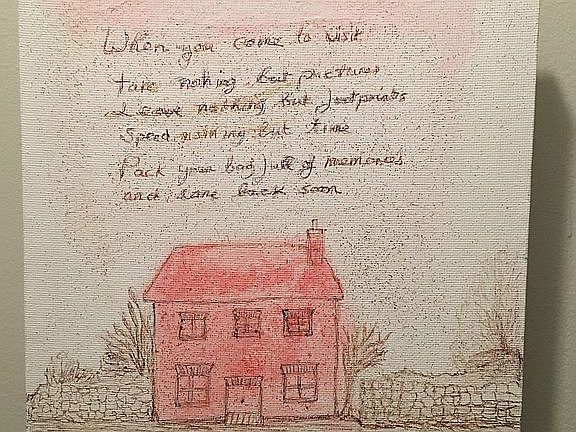 When you come to visit
take nothing but pictures
Leave nothing but footprints
Spend nothing but time
Pack your bag full of memories
and come back soon